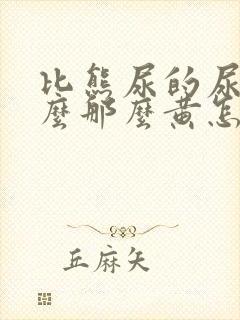 比熊尿的尿
麼那麼黄怎
丘麻矢